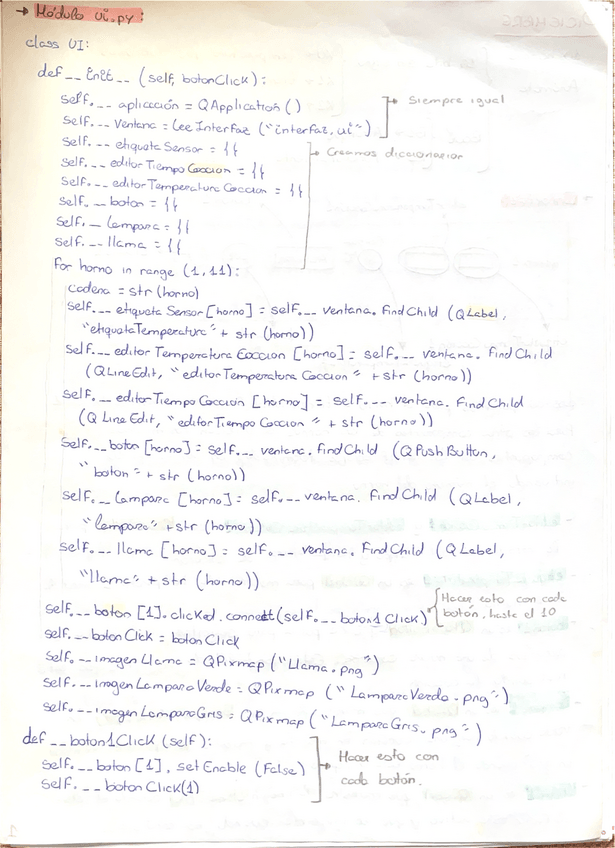 → Módulo ui.py:
class UI:
def __Init__ (self, botonClick):
self.__aplicación = QApplication ()
self.__Ventana = LeeInterfaz ("interfaz.ui")
→ Siempre igual
self.__etiquetaSensor = {{
self.__editorTiempoCoccion = {{
self.__editorTemperaturaCoccion = {{
self.__boton = {{
self.__lampara = {{
self.__llama = {{
→ Creamos diccionarios
for horno in range (1,11):
cadena = str (horno)
self.__etiquetaSensor [horno] = self.__ventana.findChild (QLabel,
"etiquetaTemperatura" + str (horno))
self.__editorTemperaturaCoccion [horno] = self.__ventana.findChild
(QLineEdit, "editorTemperaturaCoccion" + str (horno))
self.__editorTiempoCoccion [horno] = self.__ventana.findChild
(QLineEdit, "editorTiempoCoccion" + str (horno))
self.__boton [horno] = self.__ventana.findChild (QPushButton,
"boton" + str (horno))
self.__lampara [horno] = self.__ventana.findChild (QLabel,
"lampara" + str (horno))
self.__llama [horno] = self.__ventana.findChild (QLabel,
"llama" + str (horno))
self.__boton [1].clicked.connect(self.__boton1Click)
Hacer esto con cada
botón, hasta el 10
self.__botonClick = botonClick
self.__imagenLlama = QPixmap ("Llama.png")
self.__imagenLamparaVerde = QPixmap ("LamparaVerde.png")
self.__imagenLamparaGris = QPixmap ("LamparaGris.png")
def __boton1Click (self):
self.__boton [1], setEnable (False)
self.__botonClick(1)
→ Hacer esto con
cada botón.